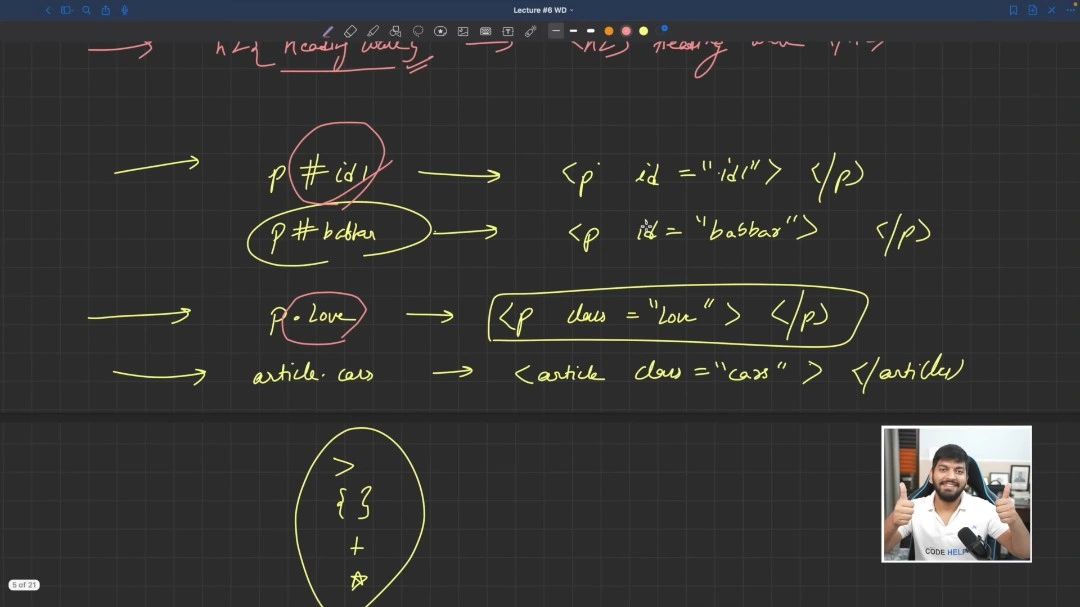 Lecture #6 WD
h2{ Heading
p #id1 <p id="id1"> </p>
p#babbar <p id="babbar"> </p>
p.Love <p class="Love"> </p>
article.cars <article class="cars"> </article>
>
{}
+
*
CODE HELP
5 of 21